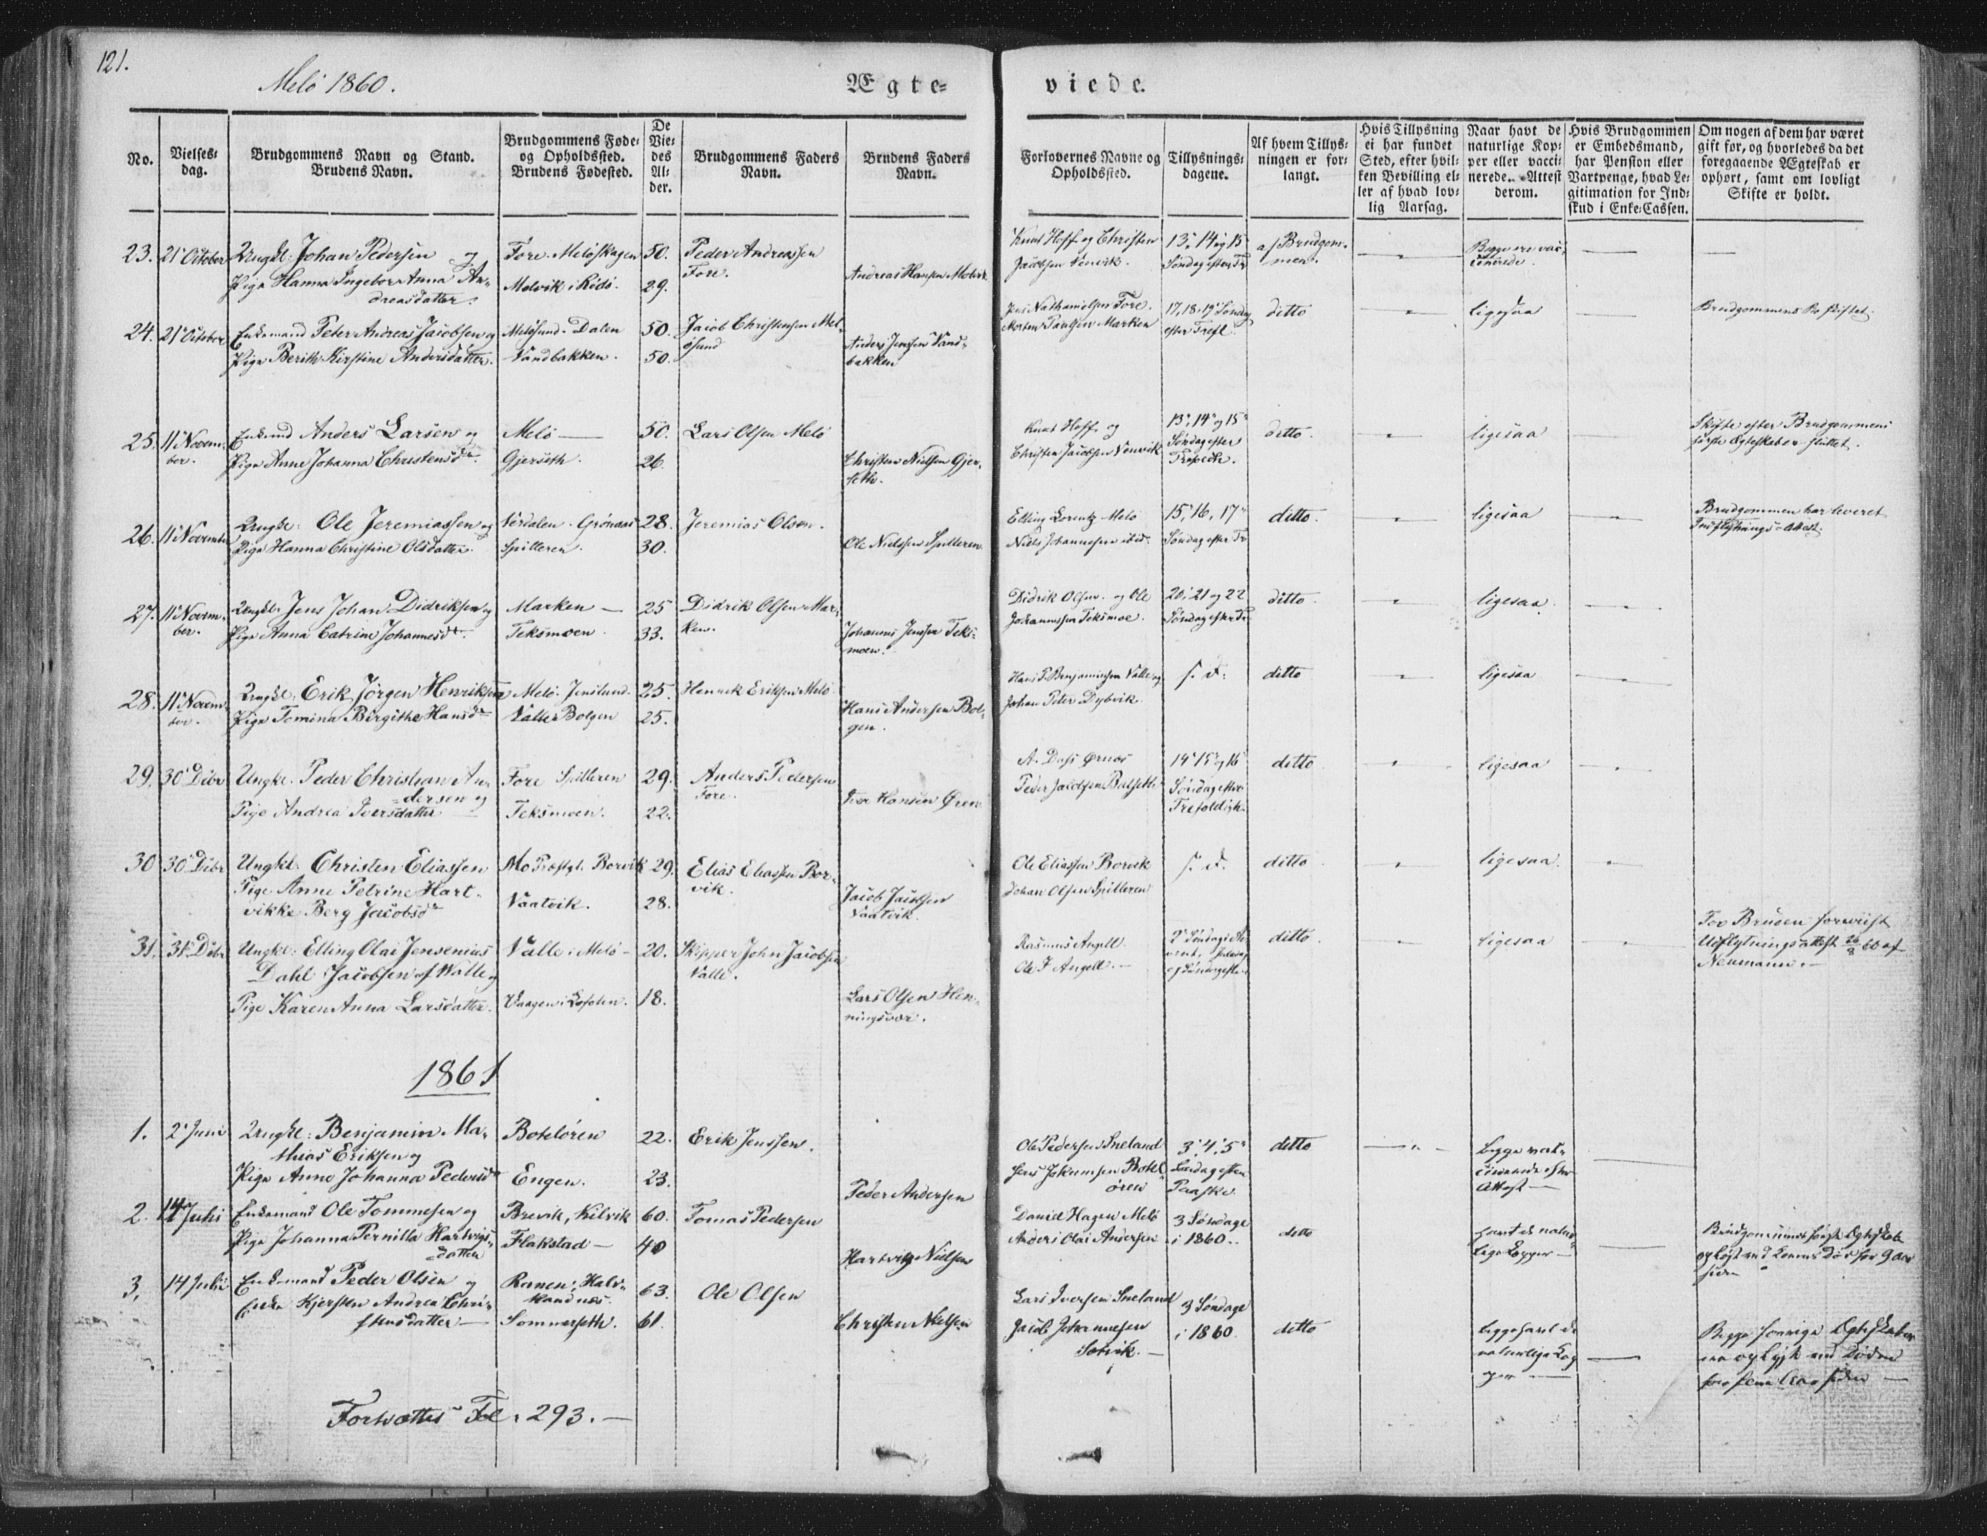 121.
Melö 1860.
Ægte-
viede.
No.
Vielses-
dag.
Brudgommens Navn og Stand.
Brudens Navn.
Brudgommens Føde-
og Opholdssted.
Brudens Fødested.
De
Vie-
des
Al-
der.
Brudgommens Faders
Navn.
Brudens Faders
Navn.
Forlovernes Navne og
Opholdssted.
Tillysnings-
dagene.
Af hvem Tillys-
ningen er for-
langt.
Hvis Tillysning
ei har fundet
Sted, efter hvil-
ken Bevilling el-
ler af hvad lov-
lig Aarsag.
Naar havt de
naturlige Kop-
per eller vacci-
nerede. Attest
derom.
Hvis Brudgommen
er Embedsmand,
har Pension eller
Vartpenge, hvad Le-
gitimation for Ind-
skud i Enke-Cassen.
Om nogen af dem har været
gift før, og hvorledes da det
foregaaende Ægteskab er
ophørt, samt om lovligt
Skifte er holdt.
23. 21 October Ungkl. Johan Pedersen og
Pige Hanna Ingebor Anna An-
dreasdatter.
Fore. Meløskagen
Melvik i Rödö.
50.
29.
Peder Andreassen
Fore.
Andreas Hansen
Knut Hoff og Christen
Jacobsen Venvik.
13, 14 og 15
Søndag efter Tr
af Brudgom-
men.
Begge ere vac-
cinerede.
24. 21 October Enkemand Peter Andreas Jacobsen og
Pige Berith Kirstine Andersdatter.
Melösund. Dalen
Vandbakken.
50.
50.
Jacob Christensen Mel-
ösund
Anders Jensen Vand-
bakken
Jens Nathanielsen Fore.
Morten Paulsen Marken
17, 18, 19 Søndag
efter Tref.
ditto
ligesaa
Brudgommens
25. 11 Novem-
ber.
Enkemd Anders Larsen og
Pige Anne Johanna Christensdr.
Melö
Gjerseth.
50.
26.
Lars Olsen Melö
Christen Nielsen Gjer-
seth.
Knut Hoff og
Christen Jacobsen Venvik
13, 14 og 15
Søndag efter
ditto.
ligesaa
Skifte efter Brudgommens
første Ægteskab er sluttet.
26. 11 November Ungkl: Ole Jeremiassen og
Pige Hanna Christine Olsdatter.
Værdalen. Grönaas
Spilleren.
28.
30.
Jeremias Olsen.
Ole Nielsen Spilleren
Elling Lorentz Melö
Niels Johannesen ibid.
15, 16, 17
Søndag efter Tr
ditto.
ligesaa
Brudgommen har leveret
Attest.
27. 11 Novem-
ber.
Ungkl. Jens Johan Didriksen og
Pige Anna Catrine Johannesdr.
Marken
Teksmoen.
25
33.
Didrik Olsen Mar-
ken.
Johannes Jensen Teks-
moen.
Didrik Olsen og Ole
Johannesen Teksmoe.
20, 21 og 22
Søndag efter Tr
ditto.
ligesaa.
28. 11 Novem-
ber.
Ungkl. Erik Jörgen Henriksen
Pige Tomina Birgithe Hansdr
Melö. Jenslund
Valle Bolgen
25.
25.
Henrik Eriksen Melö
Hans Andersen Bol-
gen.
Hans P. Benjaminsen Valle og
Johan Peter Dybvik.
s. d.
ditto
ligesaa
29. 30 Decbr Ungkl. Peder Christian An-
dersen og
Pige Andrea Iversdatter
Fore Spilleren
Teksmoen.
29.
22.
Anders Pedersen
Fore.
Iver Hansen Ören
A. Dass Ørnæs
Peder Jacobsen
14, 15 og 16
Søndag efter
Trefoldigh.
ditto
ligesaa
30 30 Decbr Ungkl. Christen Eliassen
Pige Anne Petrine Hart-
vikke Berg Jacobsdr
Mo Præstgl. Borvik
Vaatvik.
29.
28.
Elias Eliassen Bor-
vik.
Jacob Jacobsen
Vaatvik.
Ole Eliassen Borvik
Johan Olsen Spilleren
s. d.
ditto
ligesaa.
31. 31 Decbr Ungkl. Elling Olai Jensenius
Dahl Jacobsen af Valle og
Pige Karen Anna Larsdatter.
Valle i Melö
Vaagen i Lofoten.
20.
18.
Skipper John Jacobsen
Valle.
Lars Olsen Hen-
ningsvær.
Rasmus Angell
Ole J Angell.
ditto
ligesaa
For Bruden forevist
Udflytningsattest 26/8 60 af
Neumann.
1861
1. 2 Juni Ungkl: Benjamin Ma-
thias Eriksen og
Pige Anne Johanna Pedersdr
Botelören
Engen.
22.
23.
Erik Jenssen.
Peder Andersen
Ole Pedersen Sneland
Jens Johannsen Botel
ören
3, 4, 5
Søndag efter
Paaske.
ditto
begge vac-
cinerede efter
Attest
2. 14 Juli Enkemand Ole Tommesen og
Pige Johanna Pernilla Hartvigs-
datter
Brevik, Kilvik
Flakstad
60.
40
Tomas Pedersen
Hartvig Nielsen
Daniel Hagen Melö
Anders Olai Andersen
3 Søndage
i 1860.
ditto
havt de natur-
lige Kopper
Brudgommens første Ægteskab
oplöst ved Konens Död for 9 Aar
siden
3. 14 Juli Enkemand Peder Olsen og
Enke Kjersten Andrea Chri-
stensdatter
Ranen, Halv-
Sommerseth.
63.
61.
Ole Olsen
Christen Nielsen
Lars Iversen Sneland
Jacob Johannesen
Sörvik.
3 Søndage
i 1860.
ditto
begge havt de
naturlige Kop
per
Begge forrige Ægteskaber
ere oplöst ved Döden
Fortsættes Fol. 293.